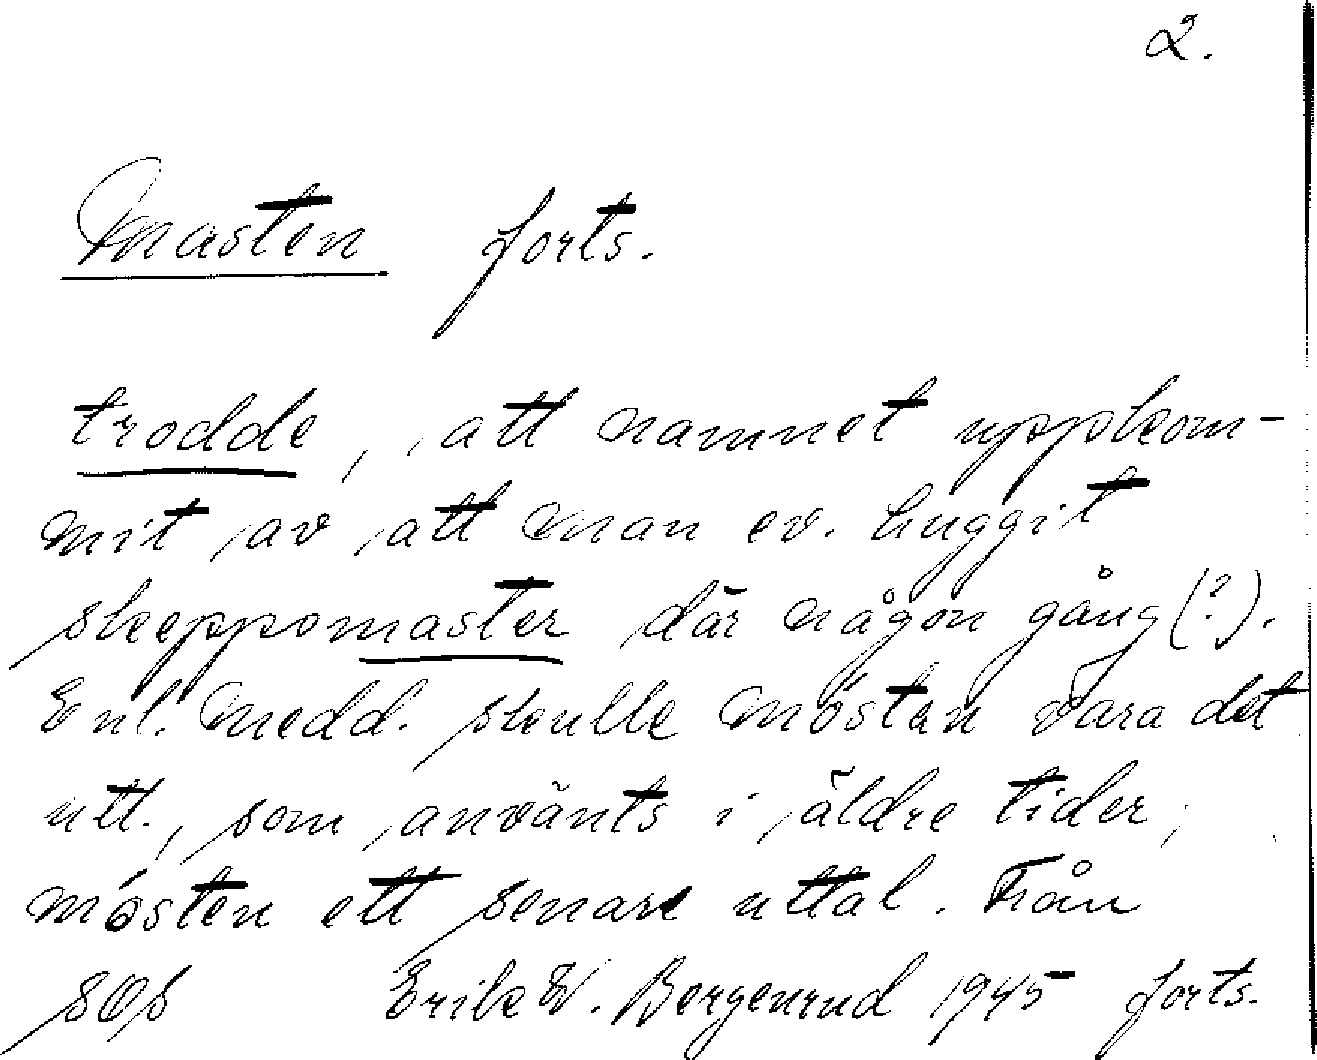 2.
Masten forts.
trodde, att namnet uppkom-
mit av att man ev. huggit
skeppsmaster där någon gång (?).
Enl. Medd. skulle mösten vara det
utt., som använts i äldre tider,
mósten ett senare uttal. Från
SOS Erik W. Bergenrud 1945 forts.